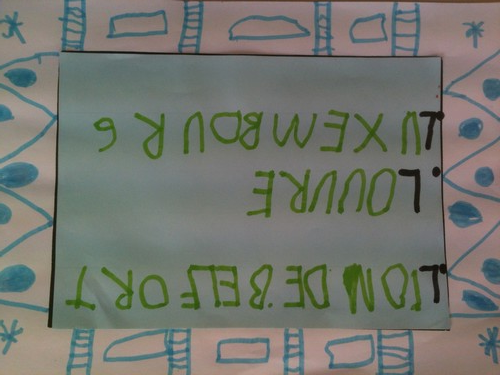 LION DE BELFORT
LOUVRE
LUXEMBOURG